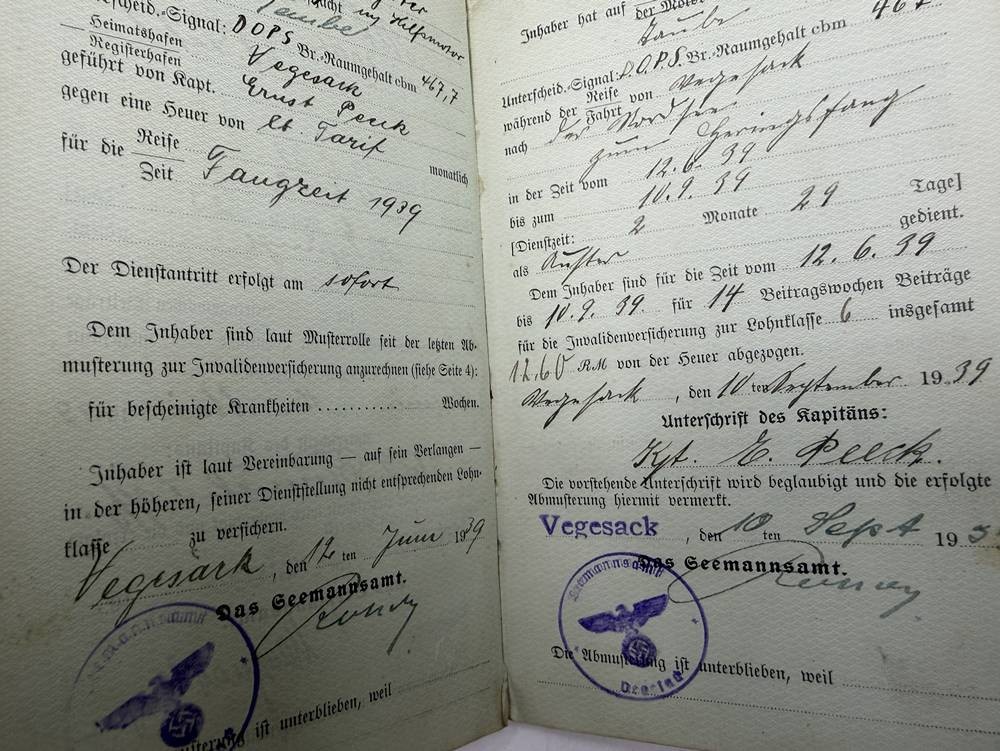 der
mit Hilfsmotor
Taube
Unterscheid.-Signal: DOPS Br.-Raumgehalt cbm 467,7
Heimatshafen
Registerhafen
Vegesack
geführt von Kapt. Ernst Peek
gegen eine Heuer von lt Tarif monatlich
für die Reise
Zeit
Fangzeit 1939
Der Dienstantritt erfolgt am sofort
Dem Inhaber sind laut Musterrolle seit der letzten Ab-
musterung zur Invalidenversicherung anzurechnen (siehe Seite 4):
für bescheinigte Krankheiten ........... Wochen.
Inhaber ist laut Vereinbarung — auf sein Verlangen —
in der höheren, seiner Dienststellung nicht entsprechenden Lohn-
klasse zu versichern.
Vegesack, den 12 ten Juni 1939
Das Seemannsamt.
Seemannsamt
ist unterblieben, weil
Inhaber hat auf der Motor
Taube
Unterscheid.-Signal: D.O.P.S. Br.-Raumgehalt cbm 467
während der Reise
Fahrt
von Vegesack
nach der Nordsee
zum Heringsfang
in der Zeit vom 12.6.39
bis zum 10.9.39
[Dienstzeit: 2 Monate 29 Tage]
als gedient.
Dem Inhaber sind für die Zeit vom 12.6.39
bis 10.9.39. für 14 Beitragswochen Beiträge
für die Invalidenversicherung zur Lohnklasse 6 insgesamt
12,60 RM von der Heuer abgezogen.
Vegesack, den 10 ten September 1939
Unterschrift des Kapitäns:
Kpt. E. Peek.
Die vorstehende Unterschrift wird beglaubigt und die erfolgte
Abmusterung hiermit vermerkt.
Vegesack, den 10 ten Sept 193
Das Seemannsamt.
Seemannsamt
Die Abmusterung ist unterblieben, weil